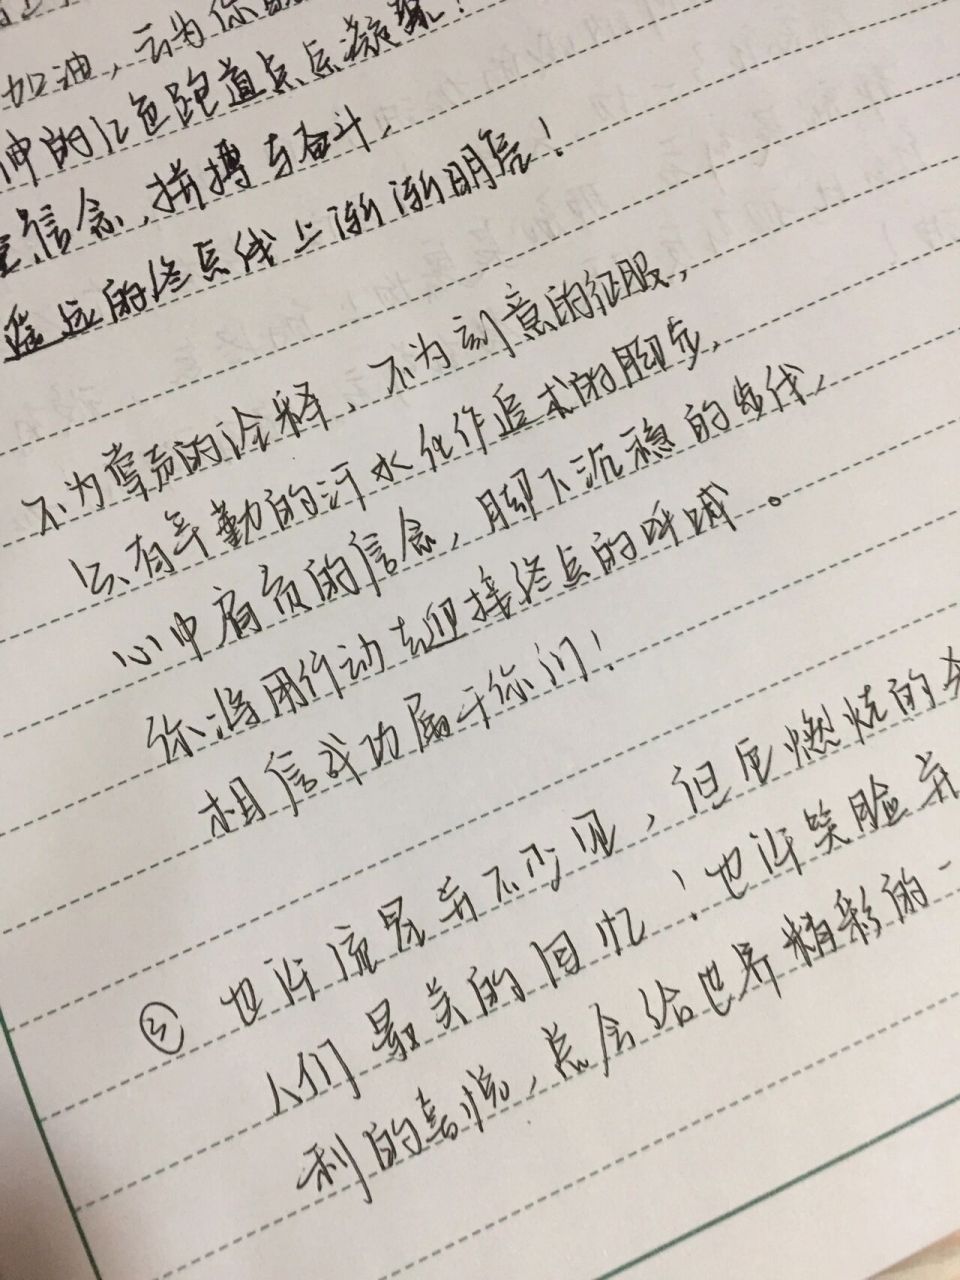 加油,云为你
冲的红色跑道点点凝聚!
信念,拼搏与奋斗,
遥远的终点线上渐渐明亮!
不为掌声的诠释,不为刻意的征服,
只有辛勤的汗水化作追求的脚步,
心中肩负的信念,脚下沉稳的步伐,
你将用行动去迎接终点的呼喊。
相信成功属于你们!
③ 也许流星并不少见,但它燃烧的
人们最美的回忆!也许笑脸并
利的喜悦,总会给世界精彩的一